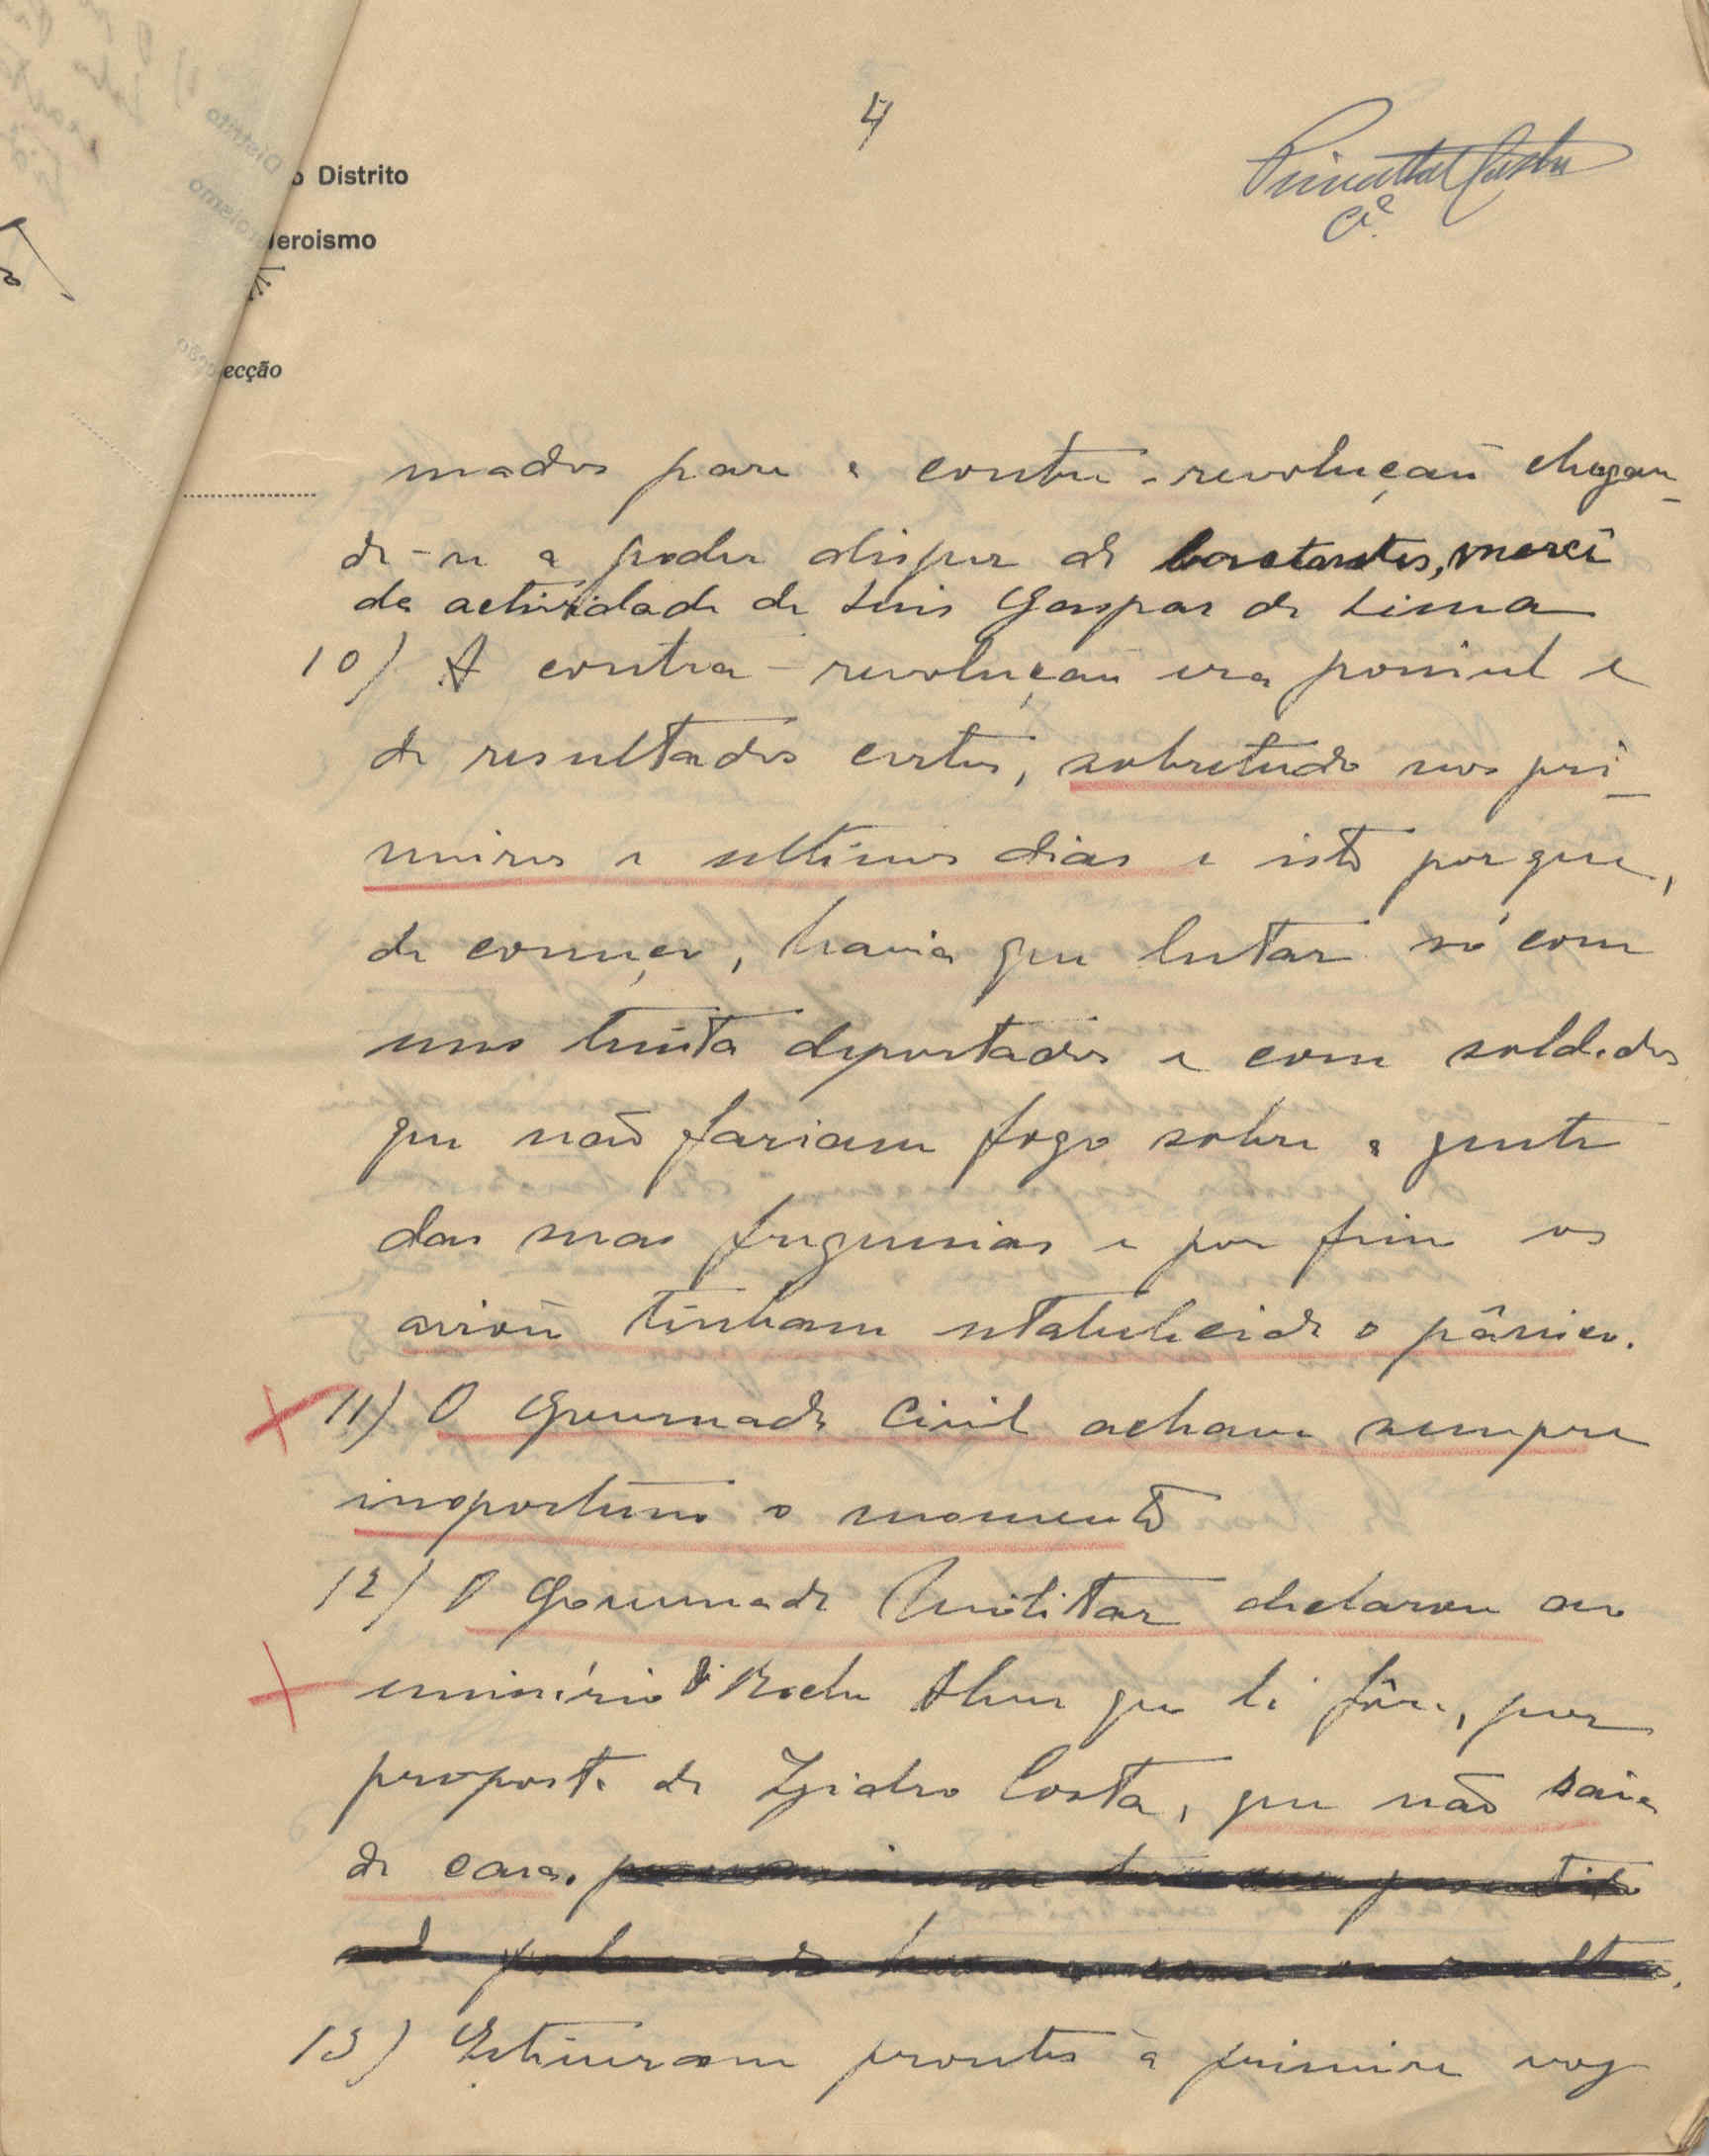 4
Pimentel Costa
o Distrito
Heroismo
ecção
mados para a contra-revolução chegan-
do-se a poder dispor de bastantes, mercê
da actividade de Luis Gaspar de Lima
10) A contra-revolução era possivel e
de resultados certos, sobretudo nos pri-
meiros e ultimos dias e isto porque,
de começo, havia que lutar só com
uns trinta deportados e com soldados
que não fariam fogo sobre a gente
das suas freguesias e por fim os
aviões tinham estabelecido o pânico.
11) O Governador Civil achava sempre
inoportuno o momento
12) O Governador Militar declarou ao
emissário Rocha Alves que lá fôra, por
proposta de Izidro Costa, que não saia
de casa.
13) Estiveram prontos à primeira voz